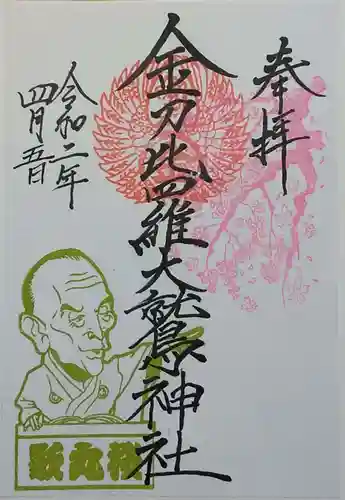 奉拝
金刀比羅大鷲神社
令和二年
四月五日
桜丸馭